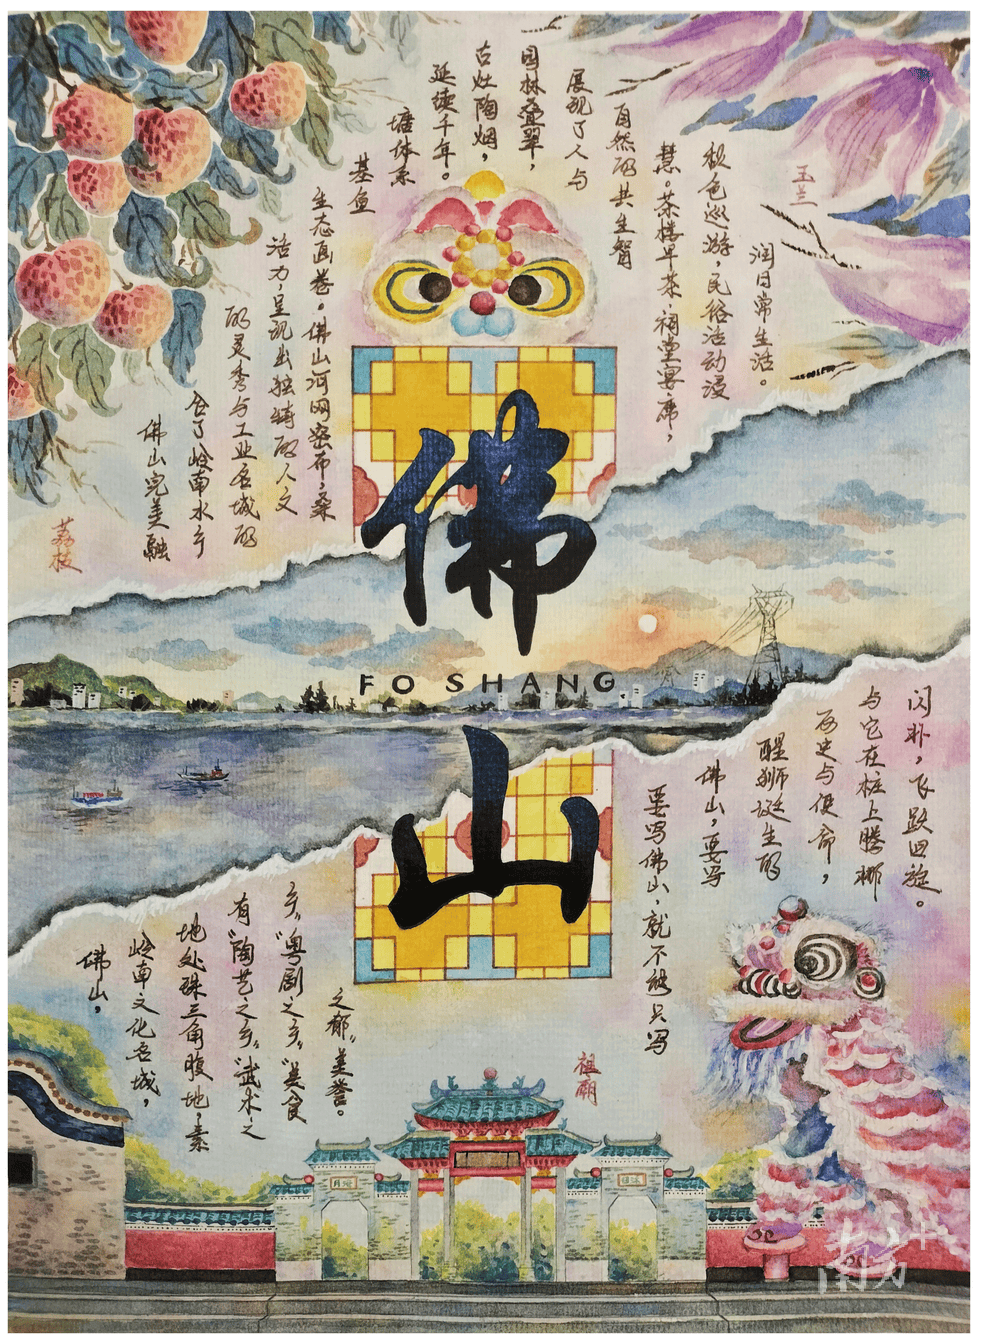 佛山完美融
合了岭南水乡
的灵秀与工业名城的
活力,呈现出独特的人文
生态画卷。佛山河网密布,桑
基鱼
塘体系
延续千年。
古灶陶烟,
园林叠翠,
展现了人与
自然的共生智
慧。茶楼早茶,祠堂宴席,
秋色巡游,民俗活动浸
润日常生活。
荔枝
玉兰
佛
FO SHANG
山
佛山,
岭南文化名城,
地处珠三角腹地,素
有“陶艺之乡”“武术之
乡”“粤剧之乡”“美食
之都”美誉。
要写佛山,就不能只写
佛山,要写
醒狮诞生的
历史与使命,
与它在桩上腾挪
闪扑,飞跃回旋。
祖廟
南方+